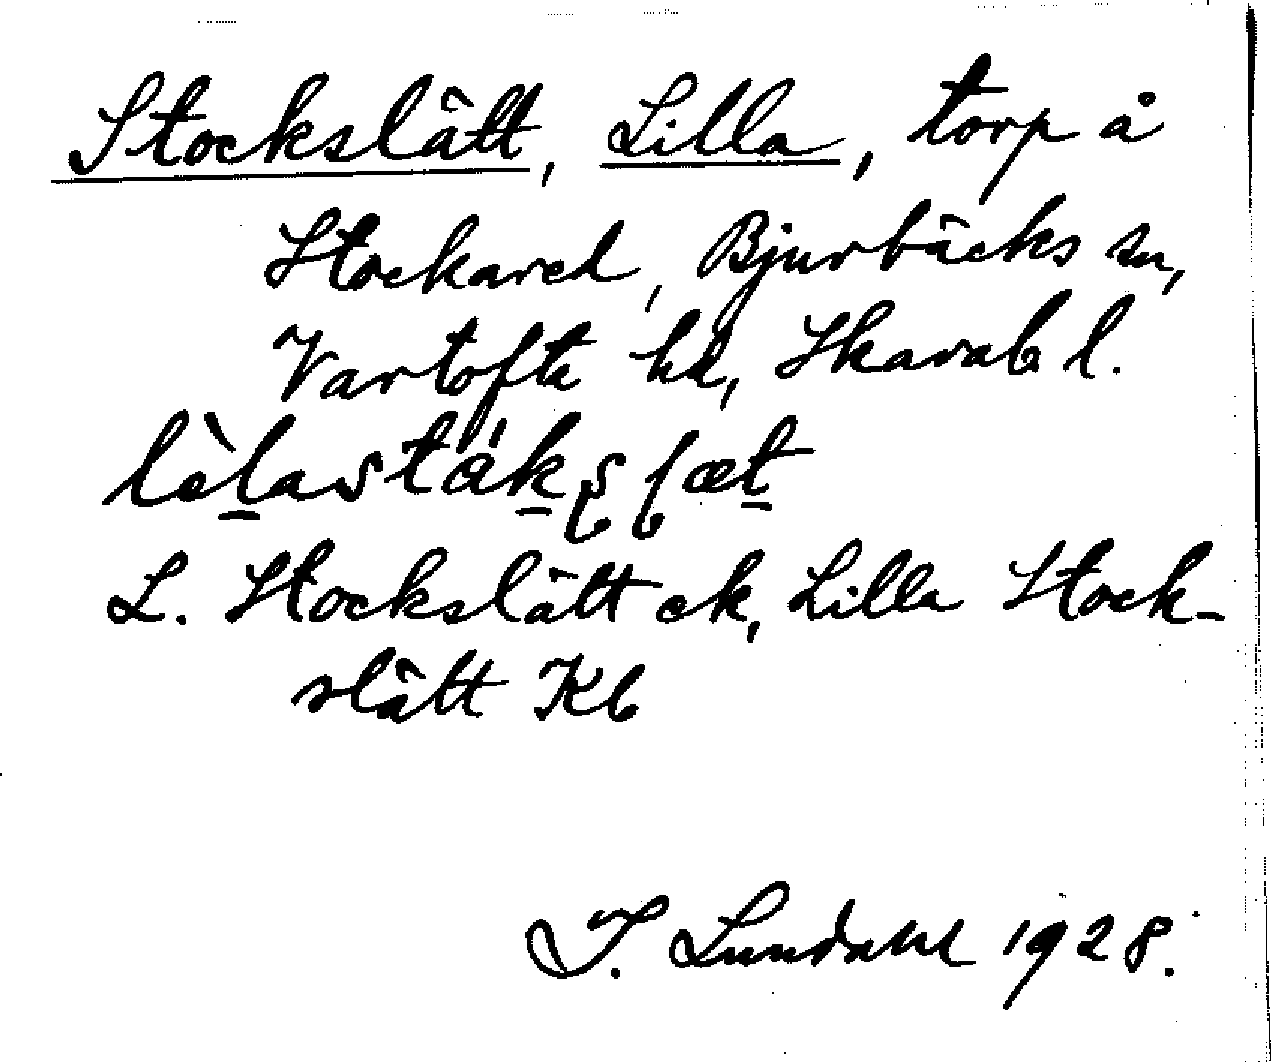 Stockslätt, Lilla, torp å
Stockared, Bjurbäcks sn,
Vartofta hd, Skarab l.
L. Stockslätt ek, Lilla Stock-
slätt Kb
I. Lundahl 1928.